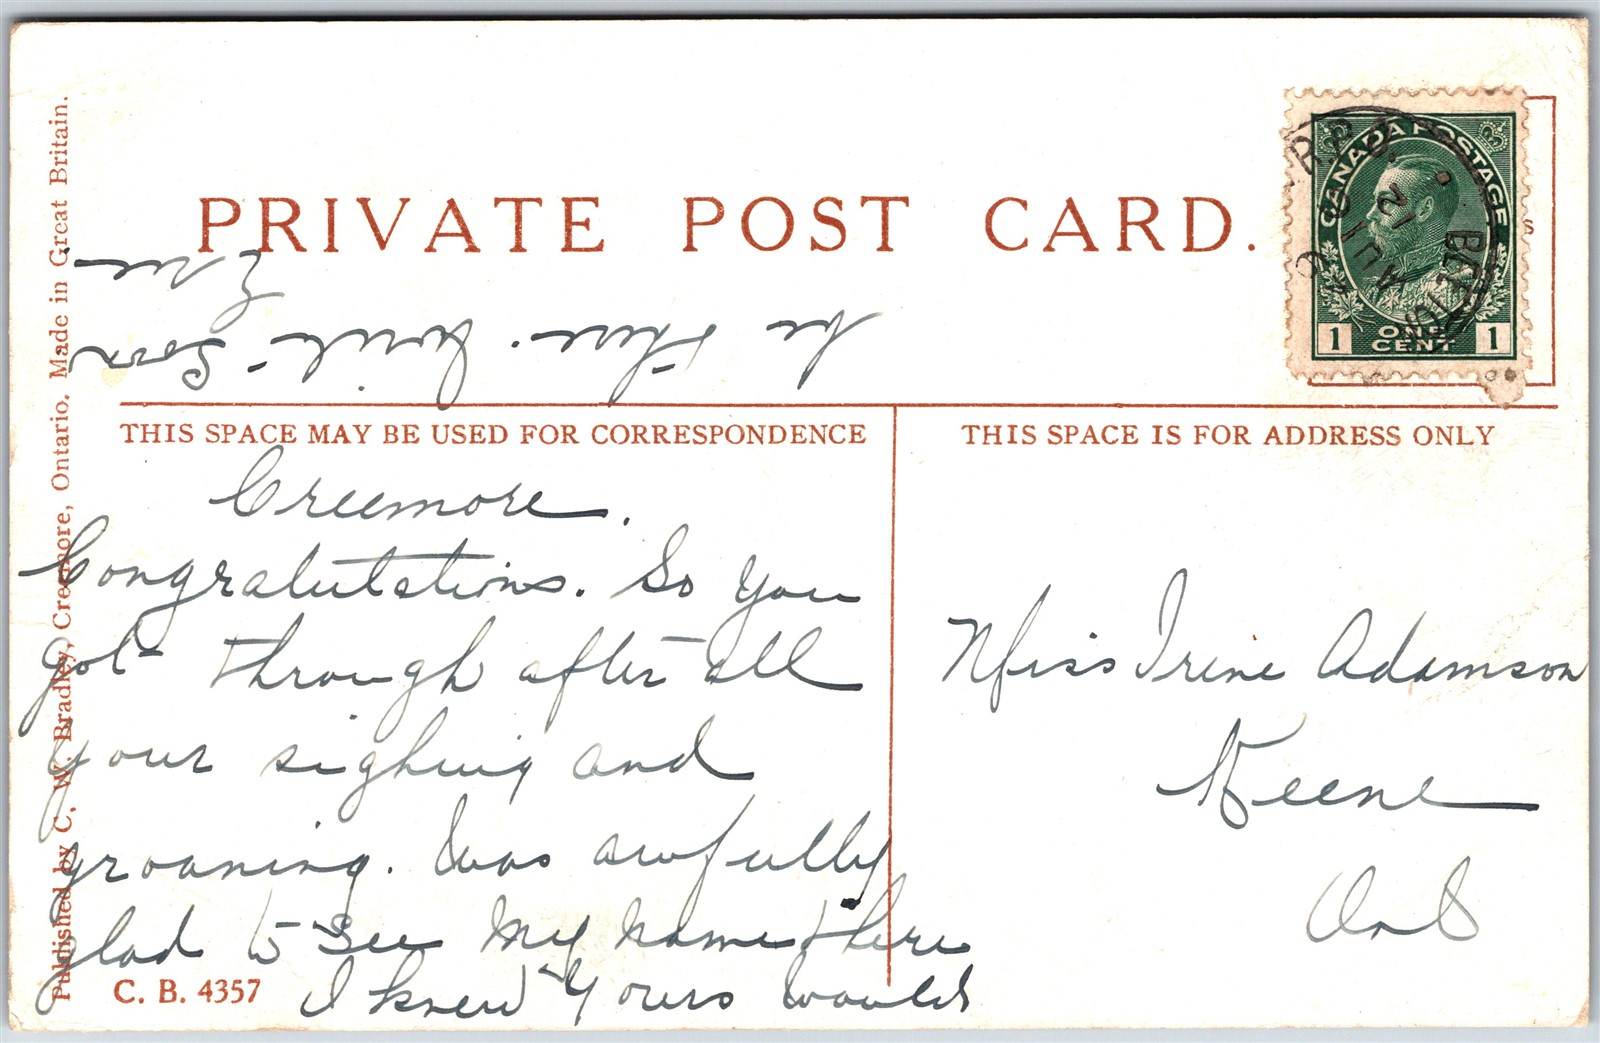 PRIVATE POST CARD.
CANADA POSTAGE
1 ONE CENT 1
BEETON
R.P.O.
AU 11
12
THIS SPACE MAY BE USED FOR CORRESPONDENCE
THIS SPACE IS FOR ADDRESS ONLY
Creemore.
Congratulations. So you
got through after all
your sighing and
groaning. Was awfully
glad to see my name there
I knew yours would
be there. Write Soon
Miss Irene Adamson
Keene
Ont
C. B. 4357
Published by C. W. Bradley, Creemore, Ontario. Made in Great Britain.